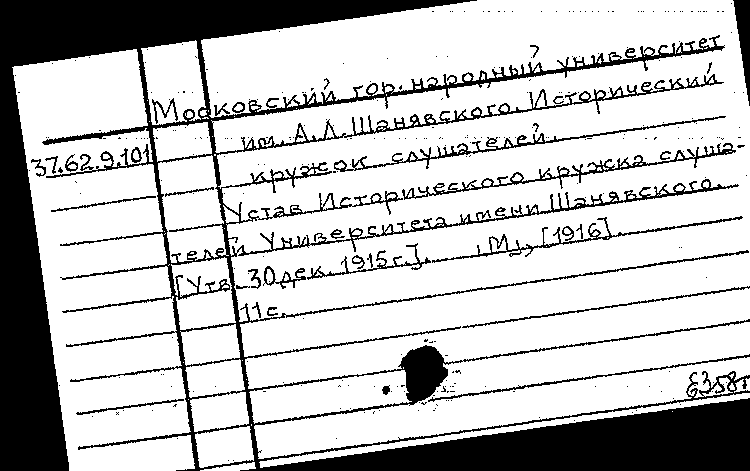 Московский гор. народный университет
им. А.Л. Шанявского. Исторический
37.62.9.101
кружок слушателей.
Устав Исторического кружка слуша-
телей Университета имени Шанявского.
[Утв. 30 дек. 1915 г.]. М., [1916].
11 с.